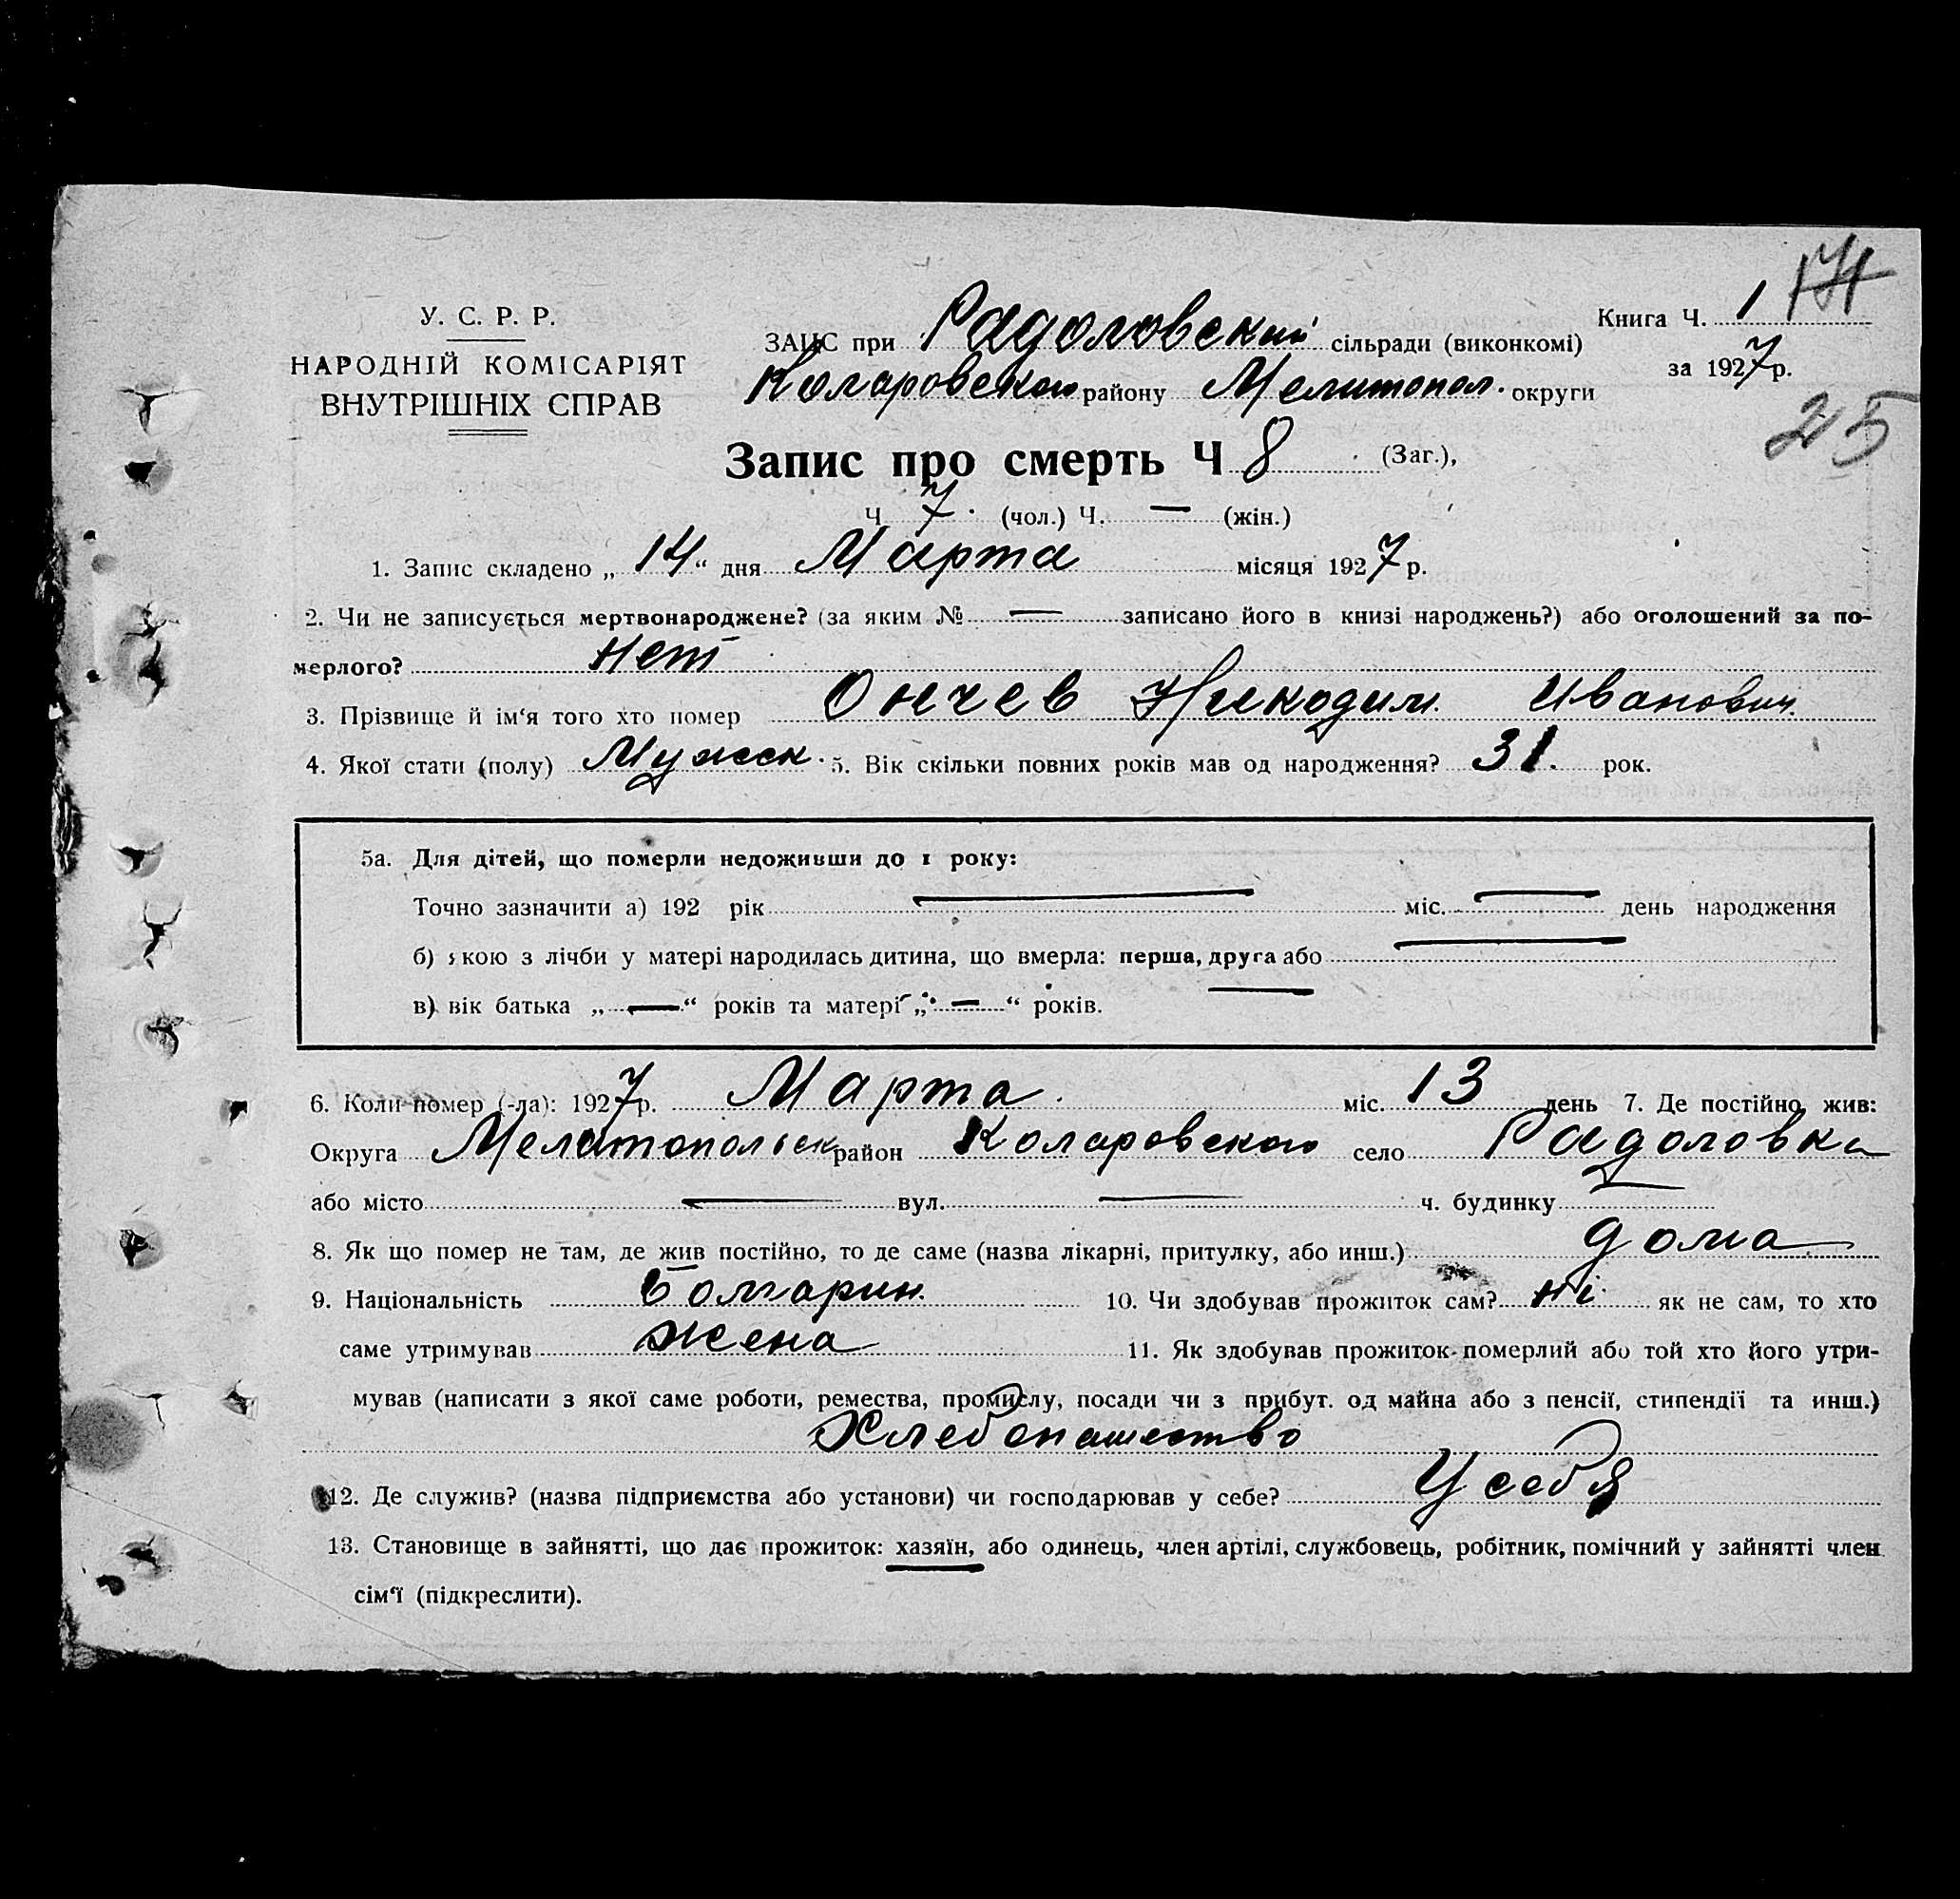 У. С. Р. Р.
НАРОДНІЙ КОМІСАРІЯТ
ВНУТРІШНІХ СПРАВ
ЗАЦС при Радоловский сільради (виконкомі)
Коларовского району Мелитопол. округи
Книга Ч. 1
за 1927 р.
25
Запис про смерть Ч 8 (Заг.),
Ч 7. (чол.) Ч. — (жін.)
1. Запис складено „ 14 “ дня Марта місяця 1927 р.
2. Чи не записується мертвонароджене? (за яким № — записано його в книзі народжень?) або оголошений за по-
мерлого? Нет
3. Прізвище й ім‘я того хто помер Ончев Никодим. Иванович.
4. Якої стати (полу) Мужск. 5. Вік скільки повних років мав од народження? 31. рок.
5а. Для дітей, що померли недоживши до 1 року:
Точно зазначити а) 192 рік — міс. — день народження
б) якою з лічби у матері народилась дитина, що вмерла: перша, друга або —
в) вік батька „ — “ років та матері „ — “ років.
6. Коли помер (-ла): 1927 р. Марта. міс. 13 день 7. Де постійно жив:
Округа Мелитопольск район Коларовского село Радоловка
або місто — вул. — ч. будинку —
8. Як що помер не там, де жив постійно, то де саме (назва лікарні, притулку, або инш.) дома
9. Національність Болгарин. 10. Чи здобував прожиток сам? Ні як не сам, то хто
саме утримував жена 11. Як здобував прожиток померлий або той хто його утри-
мував (написати з якої саме роботи, ремества, промислу, посади чи з прибут. од майна або з пенсії, стипендії та инш.)
Хлебопашество
12. Де служив? (назва підприємства або установи) чи господарював у себе? У себя
13. Становище в зайнятті, що дає прожиток: хазяїн, або одинець, член артілі, службовець, робітник, помічний у зайнятті член
сім‘ї (підкреслити).